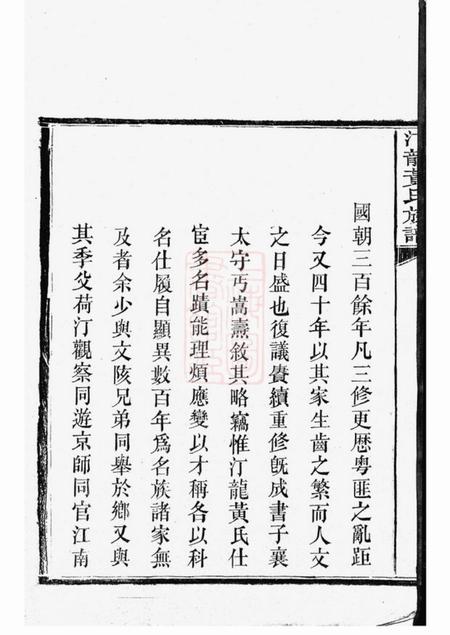 汀龍黃氏族譜
國朝三百餘年凡三修更歷粵匪之亂距
今又四十年以其家生齒之繁而人文
之日盛也復議賡續重修旣成書子襄
太守丐嵩燾敘其略竊惟汀龍黃氏仕
宦多名蹟能理煩應變以才稱各以科
名仕履自顯異數百年爲名族諸家無
及者余少與文陔兄弟同舉於鄉又與
其季父荷汀觀察同遊京師同官江南